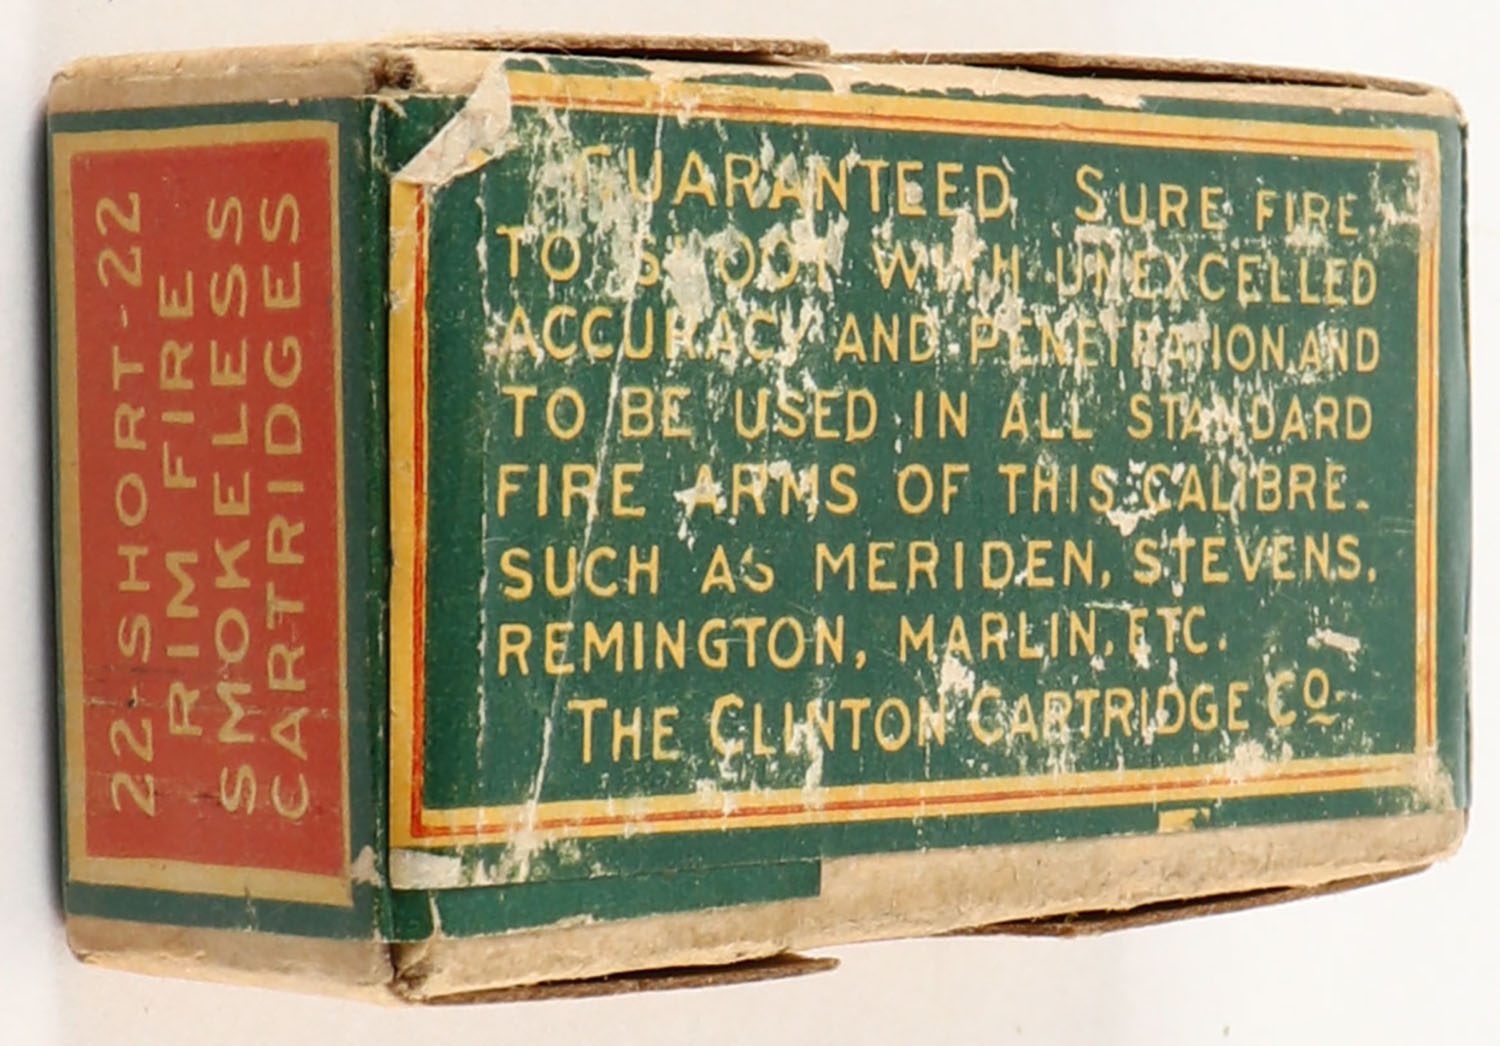 22-SHORT-22
RIM FIRE
SMOKELESS
CARTRIDGES
GUARANTEED SURE FIRE
TO SHOOT WITH UNEXCELLED
ACCURACY AND PENETRATION, AND
TO BE USED IN ALL STANDARD
FIRE ARMS OF THIS CALIBRE.
SUCH AS MERIDEN, STEVENS,
REMINGTON, MARLIN, ETC.
THE CLINTON CARTRIDGE CO.